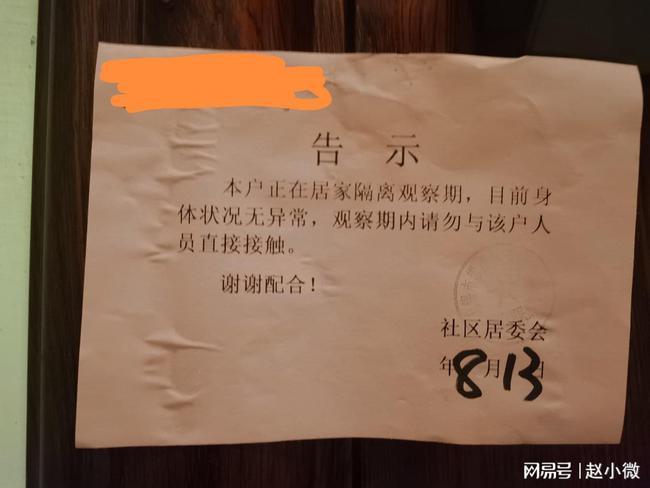 告 示
本户正在居家隔离观察期，目前身
体状况无异常，观察期内请勿与该户人
员直接接触。
谢谢配合！
社区居委会
年8月13日
网易号 | 赵小微